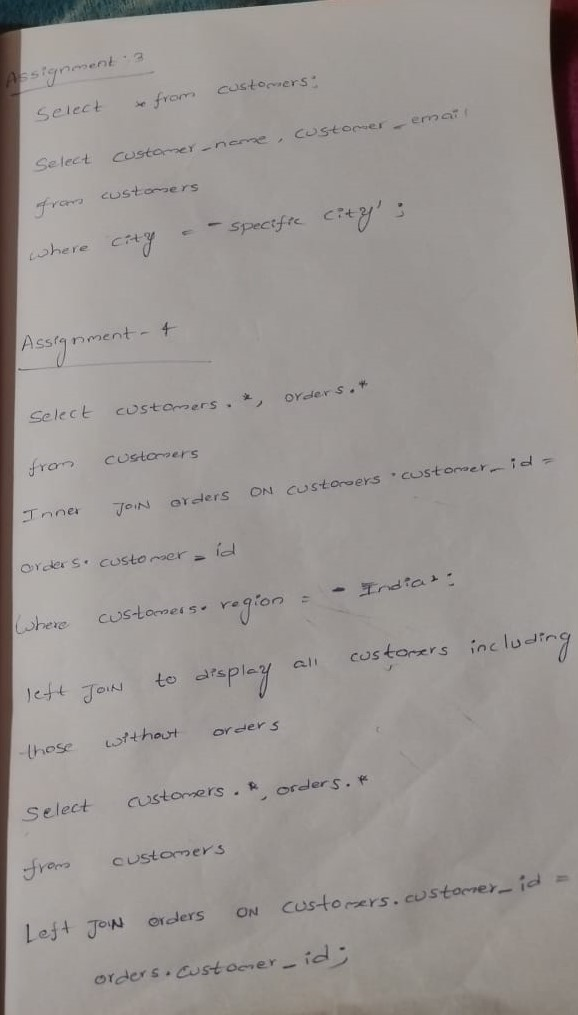 Assignment : 3
Select * from customers;
Select customer_name, customer_email
from customers
where city = - specific city' ;
Assignment - 4
Select customers.*, orders.*
from customers
Inner JOIN orders ON customers.customer_id =
orders.customer_id
Where customers.region = - India' ;
left JOIN to display all customers including
those without orders
Select customers.*, orders.*
from customers
Left JOIN orders ON customers.customer_id =
orders.customer_id;